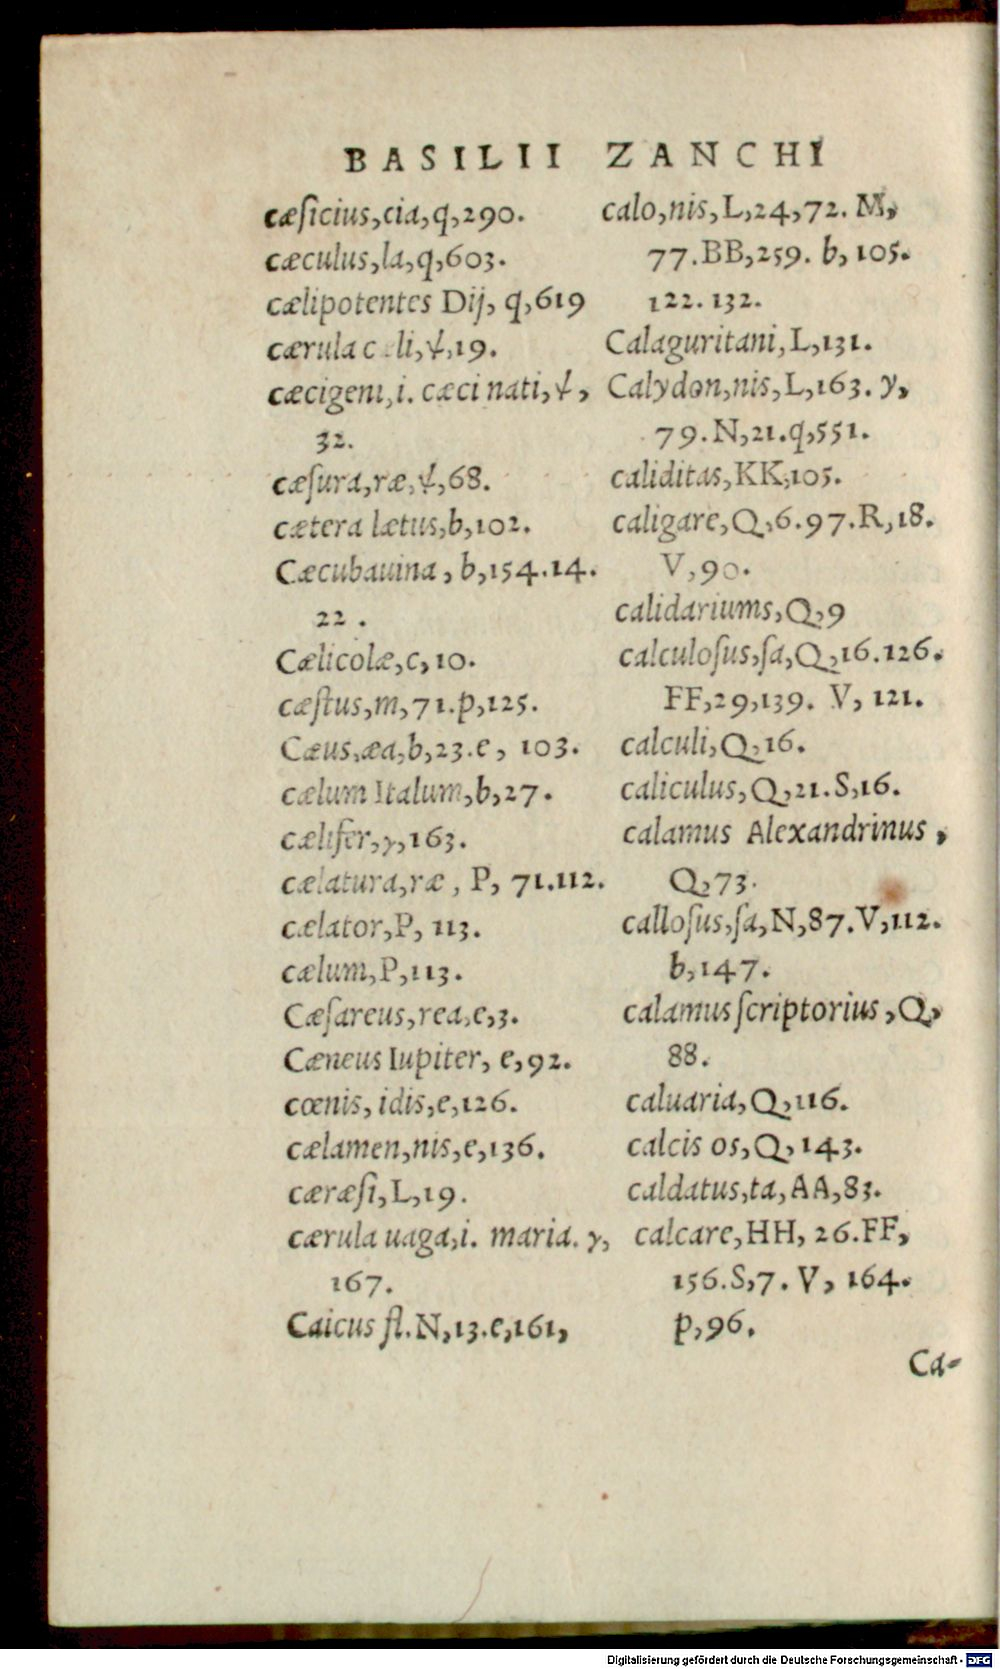 BASILII ZANCHI
cæſicius,cia,q,290.
cæculus,la,q,603.
cælipotentes Dij, q,619
cærula c li,ψ,19.
cæcigeni,i. cæci nati,ψ,
32.
cæſura,ræ,ψ,68.
cætera lætus,b,102.
Cæcubauina, b,154.14.
22.
Cælicolæ,c,10.
cæſtus,m,71.p,125.
Cæus,æa,b,23.e, 103.
cælum Italum,b,27.
cælifer,γ,163.
cælatura,ræ, P, 71.112.
cælator,P, 113.
cælum,P,113.
Cæſareus,rea,e,3.
Cæneus Iupiter, e,92.
cœnis, idis,e,126.
cælamen,nis,e,136.
cæræſi,L,19.
cærula uaga,i. maria. γ,
167.
Caicus fl.N,13.e,161,
calo,nis,L,24,72. M,
77.BB,259. b, 105.
122. 132.
Calaguritani,L,131.
Calydon,nis,L,163. y,
79.N,21.q,551.
caliditas,KK,105.
caligare,Q,6.97.R,18.
V,90.
calidariums,Q,9
calculoſus,ſa,Q,16.126.
FF,29,139. V, 121.
calculi,Q,16.
caliculus,Q,21.S,16.
calamus Alexandrinus,
Q,73.
calloſus,ſa,N,87.V,112.
b,147.
calamus ſcriptorius,Q,
88.
caluaria,Q,116.
calcis os,Q,143.
caldatus,ta,AA,83.
calcare,HH, 26.FF,
156.S,7. V, 164.
p,96.
Ca-
Digitalisierung gefördert durch die Deutsche Forschungsgemeinschaft - DFG